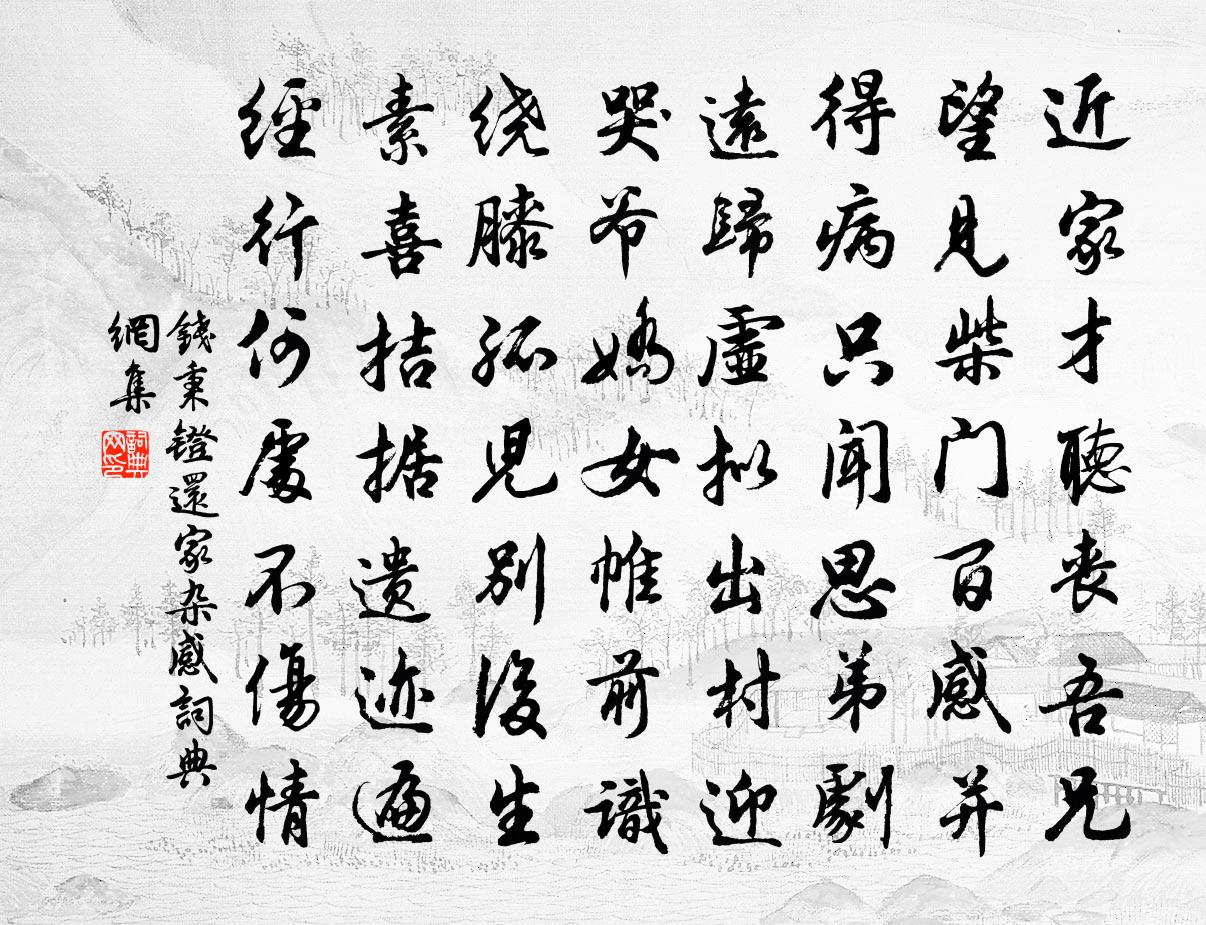 近家才聽丧吾兄
望見柴门百感并
得病只闻思弟劇
遠歸虛拟出村迎
哭爷嬌女帷前識
绕膝孤児別後生
素喜拮据遗迹遍
經行何處不傷情
錢秉鐙還家杂感詞典
網集
詞典
网印